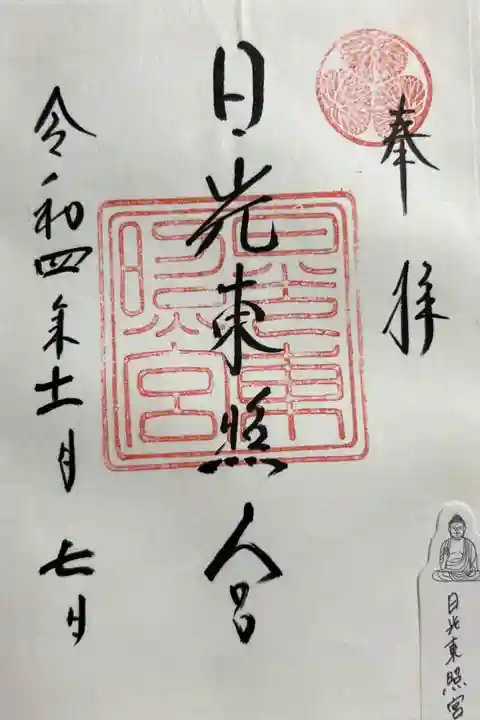 奉拝
日光東照宮
令和四年十一月七日
日光東照宮
日光東照宮